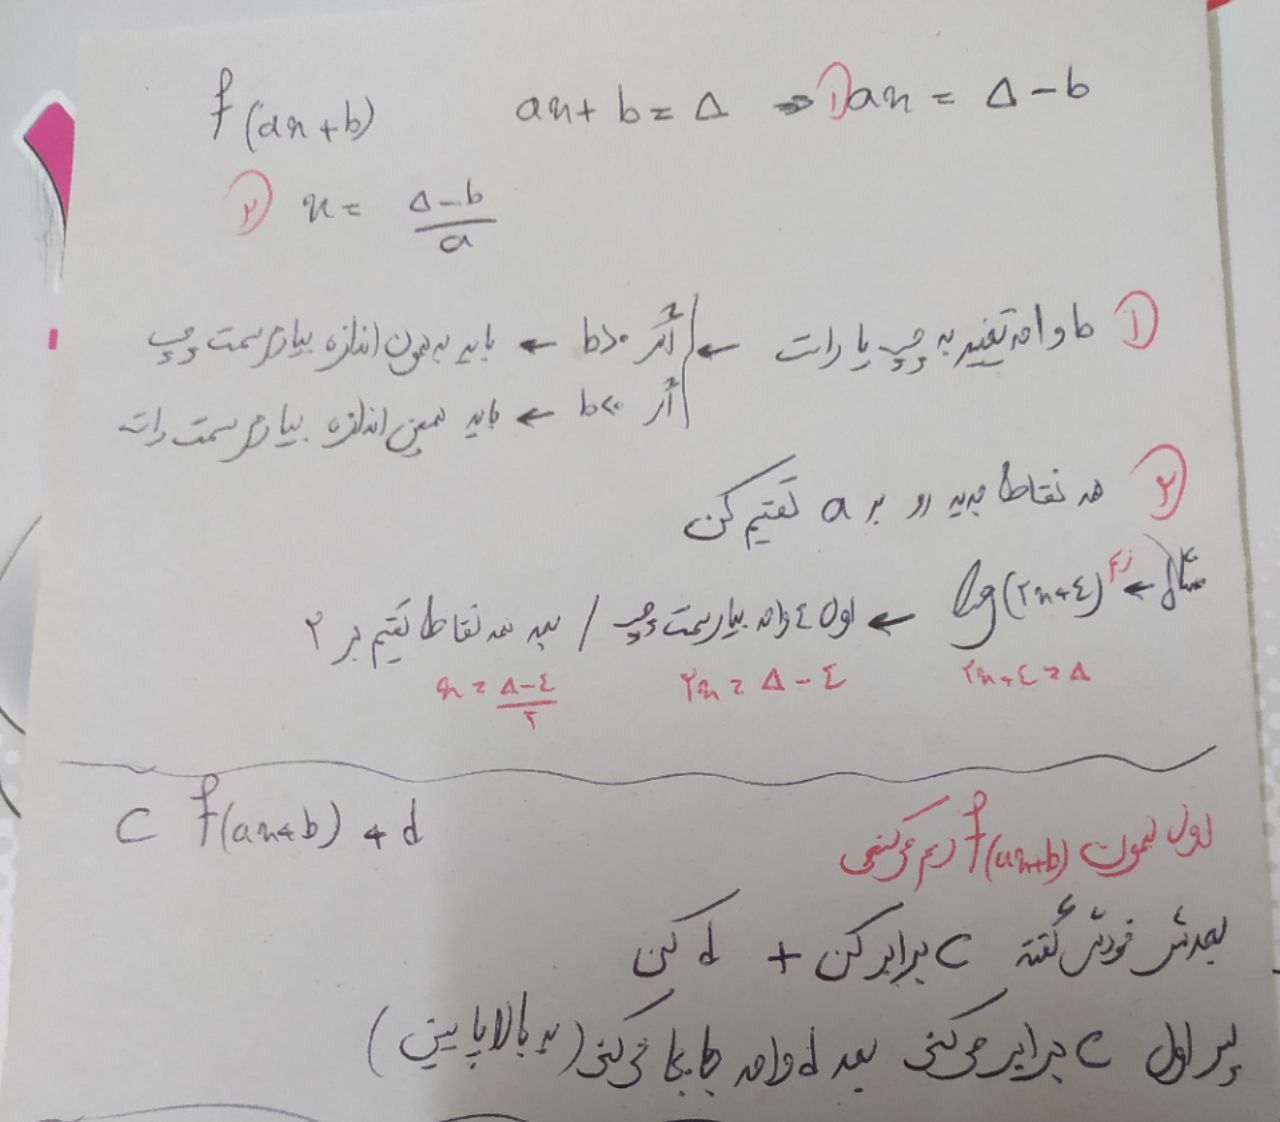 f(ax+b)    ax+b=Δ ⇒ ① ax = Δ-b
② x = (Δ-b)/a
① b واحد تغییر به چپ یا راست ← اگر b>0 ← باید به همون اندازه بیاد سمت چپ
اگر b<0 ← باید همین اندازه بیاد سمت راست
② همه نقاط جدید رو بر a تقسیم کن
مثال ← log(۲x+٤) ← اول ٤ واحد بیار سمت چپ / بعد همه نقاط تقیم بر ۲
۲x+٤=Δ    ۲x = Δ-٤    x = (Δ-٤)/۲
c f(ax+b)+d
اول نمودار f(ax+b) رسم می‌کنی
بعدش خودش گفته c برابر کن + d کن
پس اول c برابر می‌کنی بعد d واحد جابجا می‌کنی (به بالا پایین)